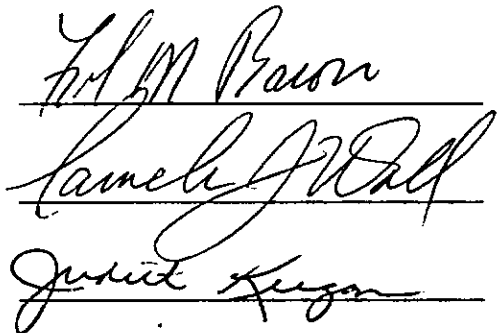 M Bacon
Pamela J Wall
Judith Keegan